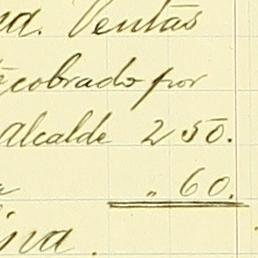 Ventas
cobrado por
alcalde 2 50.
" 60.